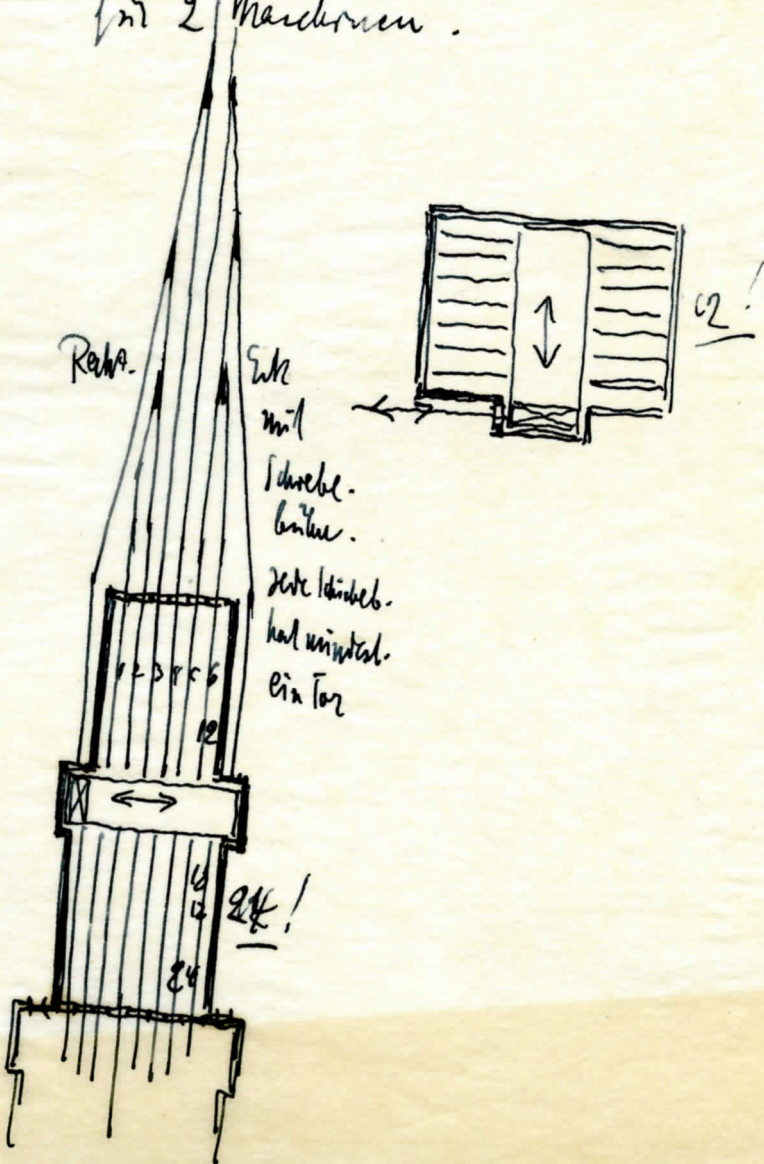 für 2 Maschinen.
Recht-
Eck
mit
Schiebe-
bühne.
Jede Schieb.
hat mindest.
ein Tor
1 2 3 4 5 6
12
12
24
24!